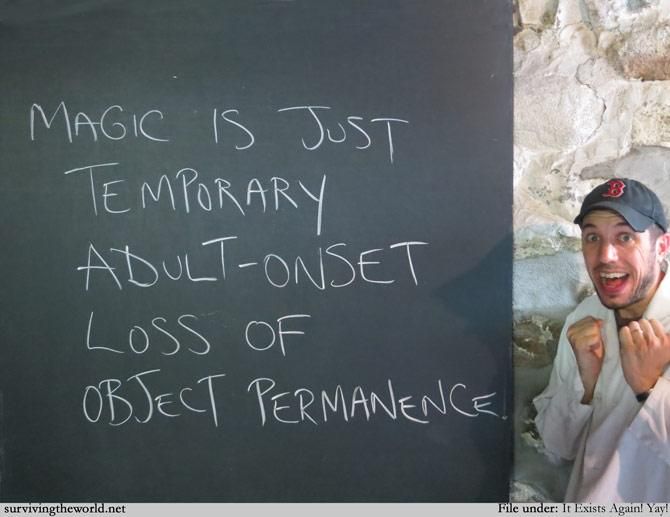 MAGIC IS JUST
TEMPORARY
ADULT-ONSET
LOSS OF
OBJECT PERMANENCE.
B
survivingtheworld.net
File under: It Exists Again! Yay!